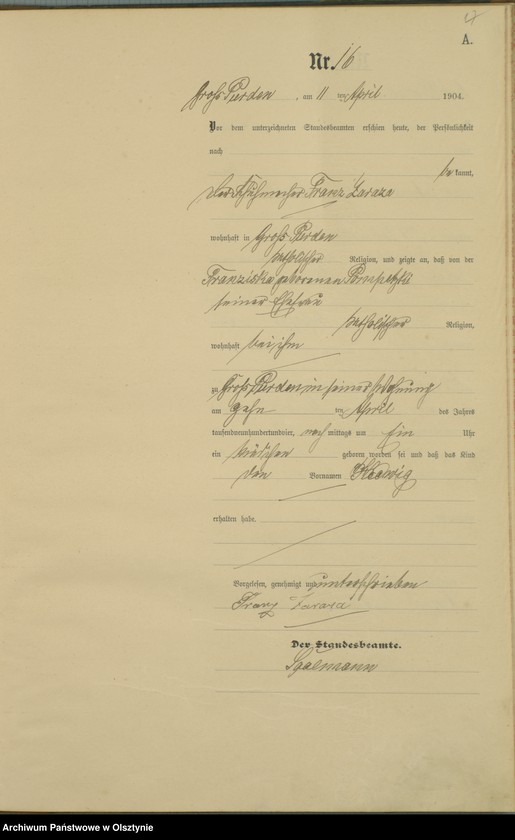 4
A.
Nr. 16
Groß Purden, am 11 ten April 1904.
Vor dem unterzeichneten Standesbeamten erschien heute, der Persönlichkeit
nach
bekannt,
der Schuhmacher Franz
wohnhaft in Groß Purden
katholischer Religion, und zeigte an, daß von der
Franziska geborenen
seiner Ehefrau
katholischer Religion,
wohnhaft bei ihm
zu Groß Purden in seiner Wohnung
am zehn ten April des Jahres
tausendneunhundertundvier, nach mittags um ein Uhr
ein Mädchen geboren worden sei und daß das Kind
den Vornamen Hedwig
erhalten habe.
Vorgelesen, genehmigt und unterschrieben
Franz
Der Standesbeamte.
Archiwum Państwowe w Olsztynie